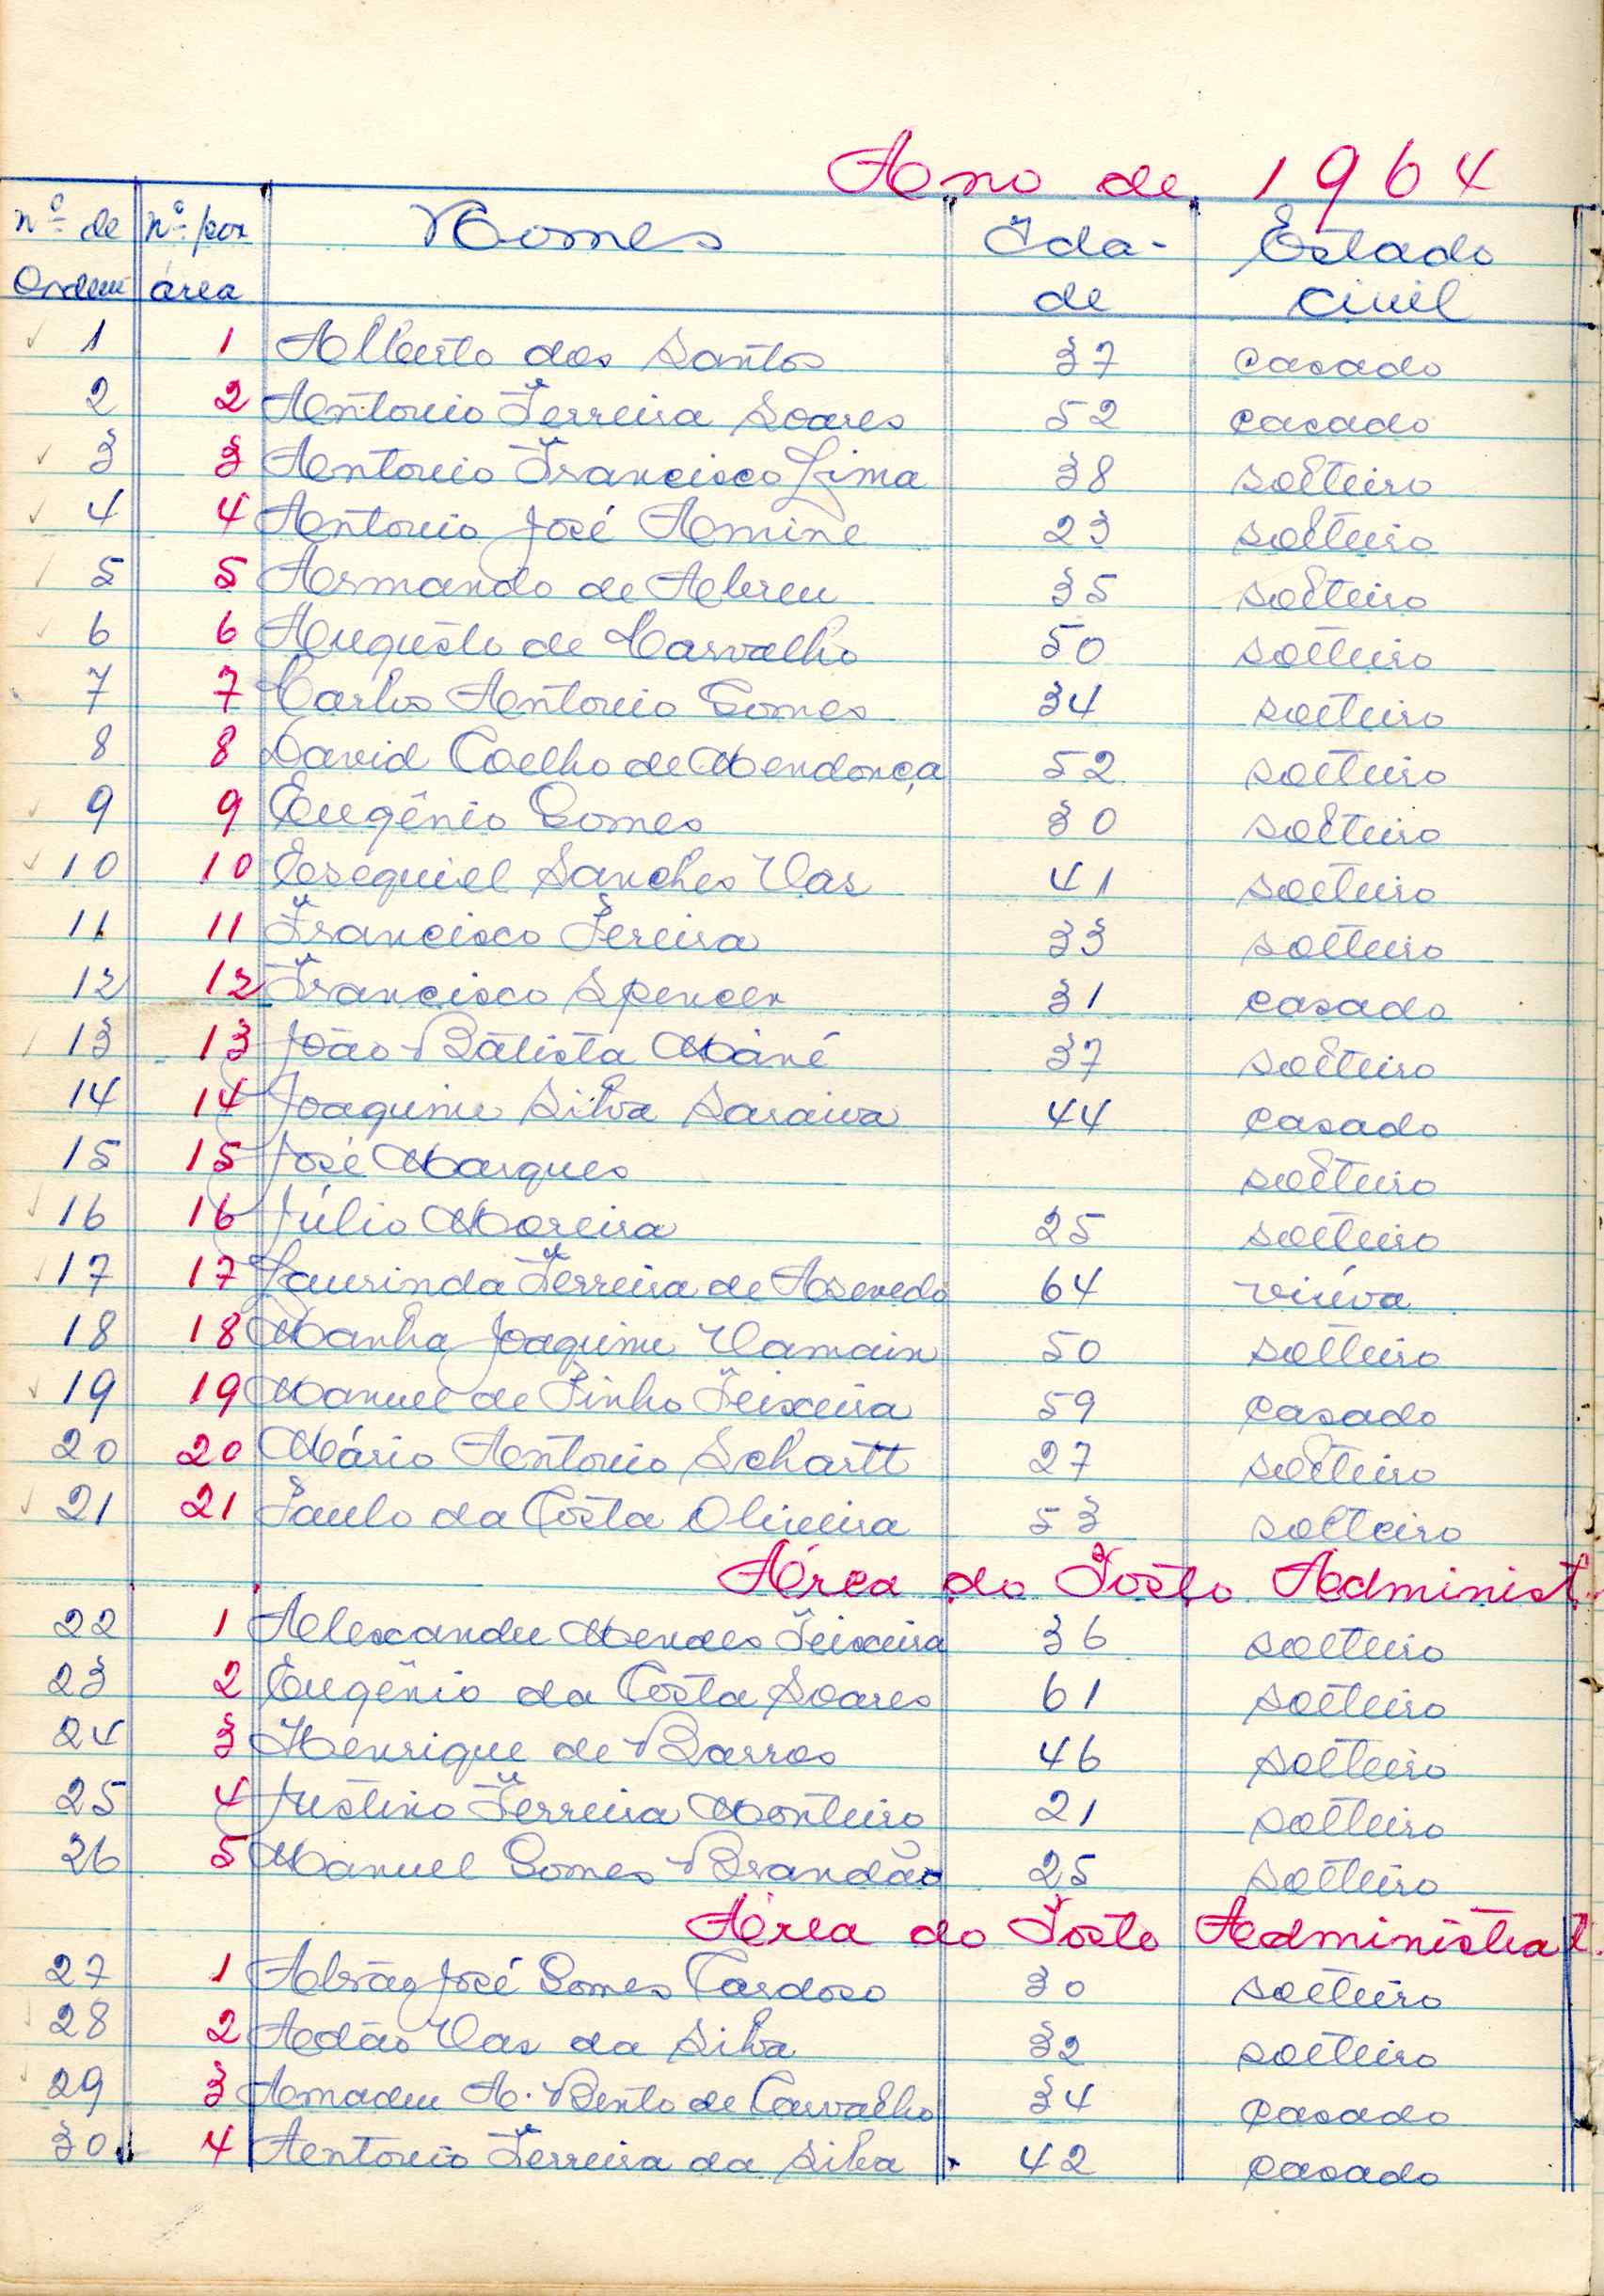 Ano de 1964
nº de Ordem nº por área Nomes Idade Estado civil
1 1 Alberto dos Santos 37 casado
2 2 Antonio Ferreira Soares 52 casado
3 3 Antonio Francisco Lima 38 solteiro
4 4 Antonio José Amine 23 solteiro
5 5 Armando de Abreu 35 solteiro
6 6 Augusto de Carvalho 50 solteiro
7 7 Carlos Antonio Gomes 34 solteiro
8 8 David Coelho de Mendonça 52 solteiro
9 9 Eugênio Gomes 30 solteiro
10 10 Esequiel Sanches Vas 41 solteiro
11 11 Francisco Pereira 33 solteiro
12 12 Francisco Spencer 31 casado
13 13 João Batista Mané 37 solteiro
14 14 Joaquim Silva Saraiva 44 casado
15 15 José Marques solteiro
16 16 Júlio Moreira 25 solteiro
17 17 Laurinda Ferreira de Asevedo 64 viúva
18 18 Manha Joaquim Vamain 50 solteiro
19 19 Manuel de Pinho Teixeira 59 casado
20 20 Mário Antonio Schartt 27 solteiro
21 21 Paulo da Costa Oliveira 53 solteiro
Área do Posto Administ.
22 1 Alexandre Mendes Teixeira 36 solteiro
23 2 Eugênio da Costa Soares 61 solteiro
24 3 Henrique de Barros 46 solteiro
25 4 Justino Ferreira Monteiro 21 solteiro
26 5 Manuel Gomes Brandão 25 solteiro
Área do Posto Administrat.
27 1 Abrão José Gomes Cardoso 30 solteiro
28 2 Adão Vas da Silva 32 solteiro
29 3 Amadeu A. Bento de Carvalho 34 casado
30 4 Antonio Ferreira da Silva 42 casado